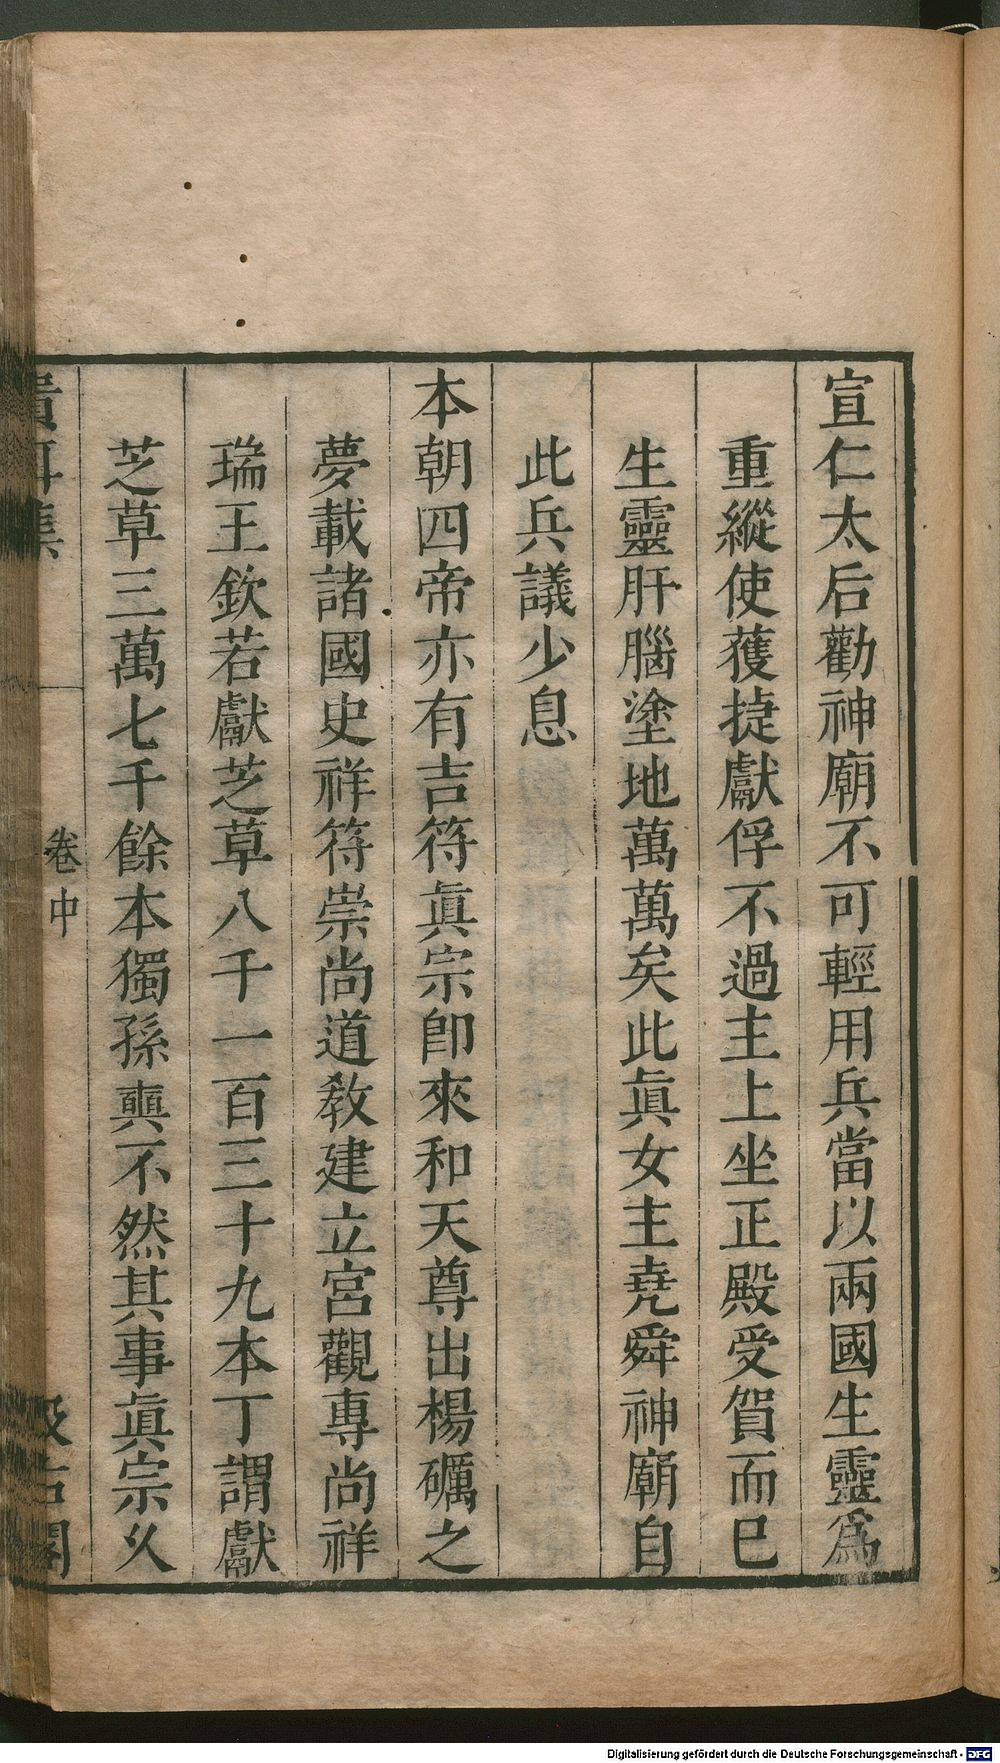 宣仁太后勸神廟不可輕用兵當以兩國生靈爲
重縱使獲捷獻俘不過主上坐正殿受賀而已
生靈肝腦塗地萬萬矣此眞女主堯舜神廟自
此兵議少息
本朝四帝亦有吉符眞宗卽來和天尊出楊礪之
夢載諸國史祥符崇尚道敎建立宮觀專尚祥
瑞王欽若獻芝草八千一百三十九本丁謂獻
芝草三萬七千餘本獨孫奭不然其事眞宗久
貴耳集
卷中
汲古閣
Digitalisierung gefördert durch die Deutsche Forschungsgemeinschaft - DFG